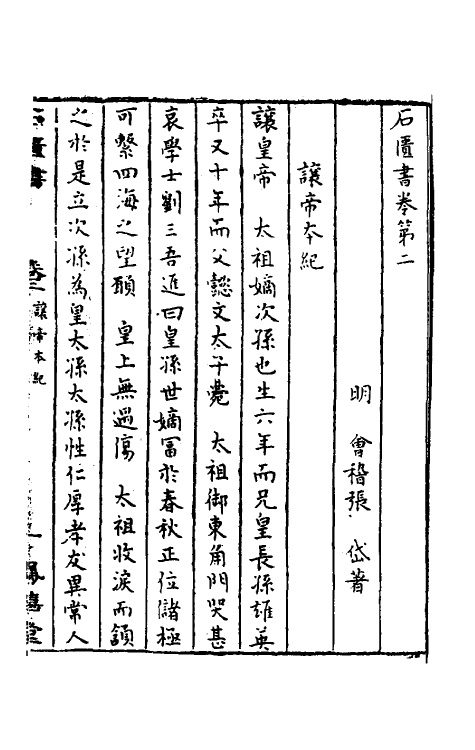 石匱書卷第二
明 會稽張 岱著
讓帝本紀
讓皇帝 太祖嫡次孫也生六年而兄皇長孫雄英
卒又十年而父懿文太子薨 太祖御東角門哭甚
哀學士劉三吾進曰皇孫世嫡冨於春秋正位儲極
可繫四海之望願 皇上無過傷 太祖收淚而頷
之於是立次孫為皇太孫太孫性仁厚孝友異常人
石匱書 卷二 讓帝本紀 鳳嬉堂